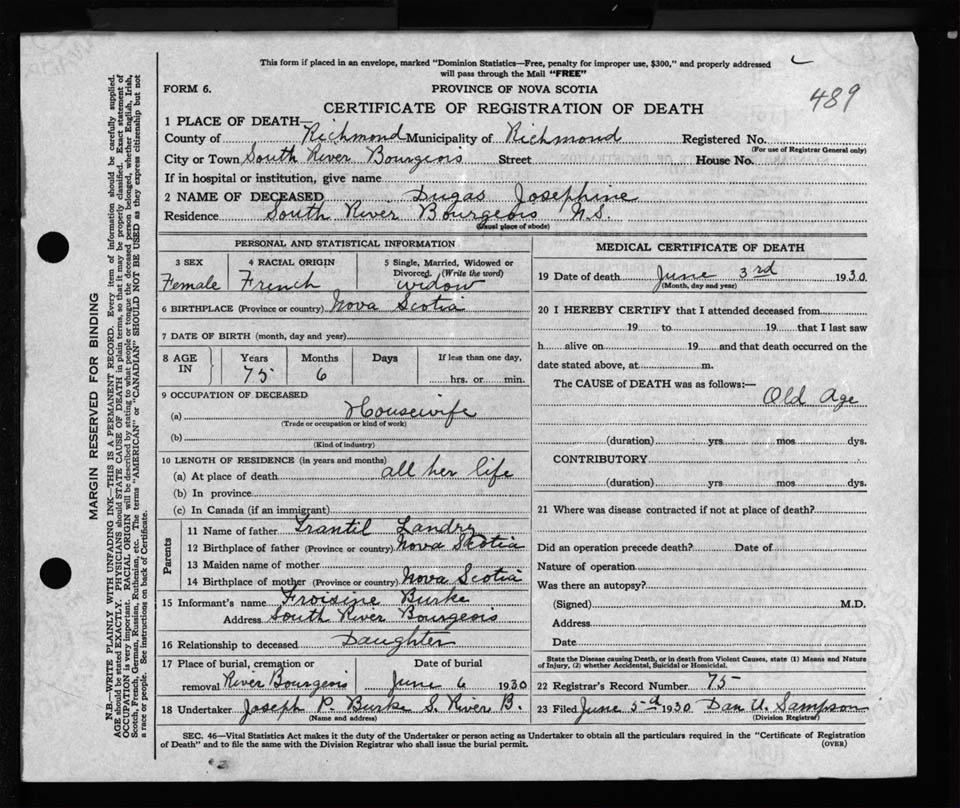 This form if placed in an envelope, marked "Dominion Statistics—Free, penalty for improper use, $300," and properly addressed
will pass through the Mail "FREE"
489
FORM 6.
PROVINCE OF NOVA SCOTIA
CERTIFICATE OF REGISTRATION OF DEATH
1 PLACE OF DEATH—
County of Richmond Municipality of Richmond Registered No.
(For use of Registrar General only)
City or Town South River Bourgeois Street House No.
If in hospital or institution, give name
2 NAME OF DECEASED Dugas Josephine
Residence South River Bourgeois N.S.
(Usual place of abode)
PERSONAL AND STATISTICAL INFORMATION
3 SEX 4 RACIAL ORIGIN 5 Single, Married, Widowed or
Divorced. (Write the word)
Female French widow
6 BIRTHPLACE (Province or country) Nova Scotia
7 DATE OF BIRTH (month, day and year)
8 AGE IN Years Months Days If less than one day,
75 6 hrs. or min.
9 OCCUPATION OF DECEASED
(a) Housewife
(Trade or occupation or kind of work)
(b)
(Kind of industry)
10 LENGTH OF RESIDENCE (in years and months)
(a) At place of death all her life
(b) In province
(c) In Canada (if an immigrant)
Parents
11 Name of father Landry
12 Birthplace of father (Province or country) Nova Scotia
13 Maiden name of mother
14 Birthplace of mother (Province or country) Nova Scotia
15 Informant's name Froisine Burke
Address South River Bourgeois
16 Relationship to deceased Daughter
17 Place of burial, cremation or Date of burial
removal River Bourgeois June 6 1930
18 Undertaker Joseph P. Burke S. River B.
(Name and address)
MEDICAL CERTIFICATE OF DEATH
19 Date of death June 3rd 1930
(Month, day and year)
20 I HEREBY CERTIFY that I attended deceased from
19 to 19 that I last saw
h alive on 19 and that death occurred on the
date stated above, at m.
The CAUSE of DEATH was as follows:—
Old Age
(duration) yrs. mos. dys.
CONTRIBUTORY
(duration) yrs. mos. dys.
21 Where was disease contracted if not at place of death?
Did an operation precede death? Date of
Nature of operation
Was there an autopsy?
(Signed) M.D.
Address
Date
State the Disease causing Death, or in death from Violent Causes, state (1) Means and Nature
of Injury, (2) whether Accidental, Suicidal or Homicidal.
22 Registrar's Record Number 75
23 Filed June 5th 1930 Dan U. Sampson
(Division Registrar)
SEC. 46—Vital Statistics Act makes it the duty of the Undertaker or person acting as Undertaker to obtain all the particulars required in the "Certificate of Registration
of Death" and to file the same with the Division Registrar who shall issue the burial permit.
(OVER)
MARGIN RESERVED FOR BINDING
N.B.—WRITE PLAINLY WITH UNFADING INK—THIS IS A PERMANENT RECORD. Every item of information should be carefully supplied.
AGE should be stated EXACTLY. PHYSICIANS should STATE CAUSE OF DEATH in plain terms, so that it may be properly classified. Exact statement of
OCCUPATION is very important. RACIAL ORIGIN will be described by stating to what people or tongue the deceased person belonged, whether English, Irish,
Scotch, French, German, Russian, Ruthenian, etc. The terms "AMERICAN" or "CANADIAN" SHOULD NOT BE USED as they express citizenship but not
a race or people. See instructions on back of Certificate.